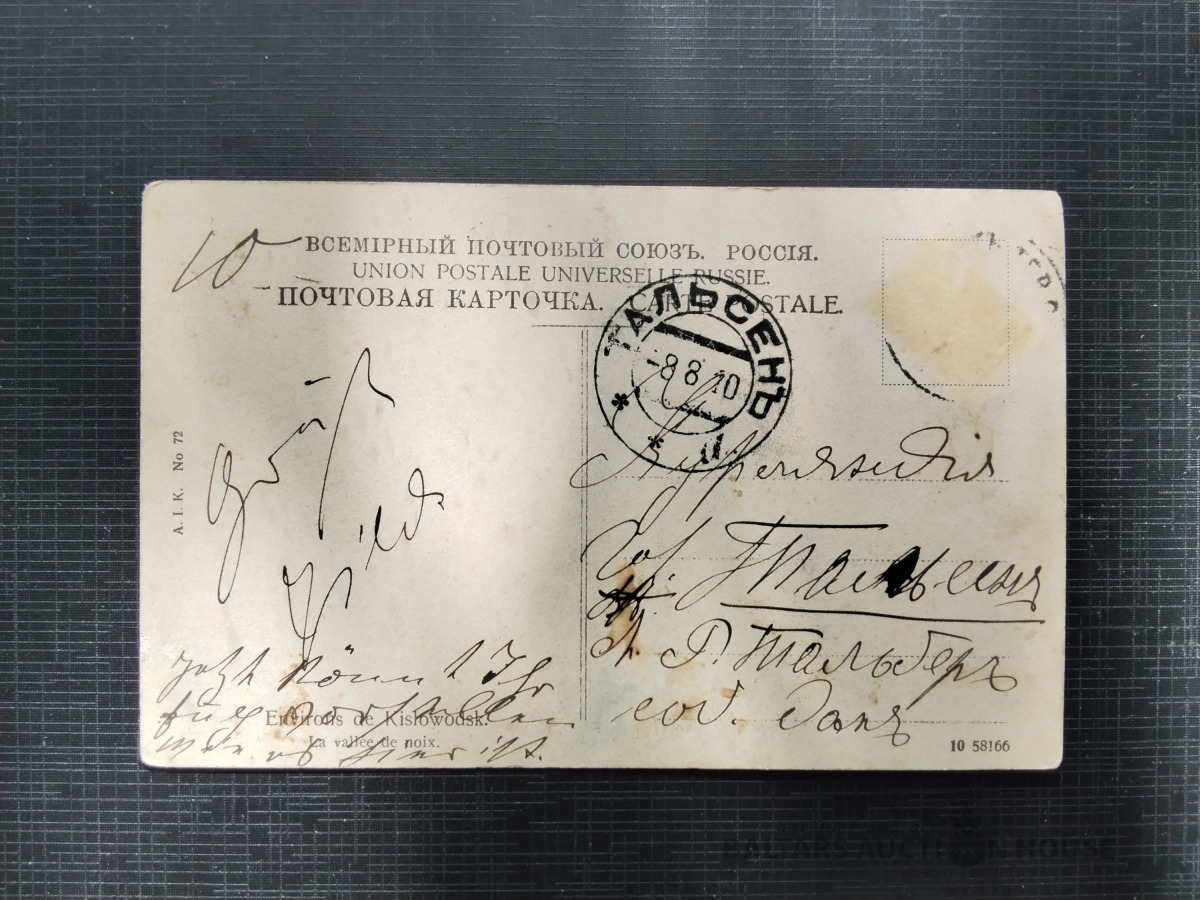 10
ВСЕМІРНЫЙ ПОЧТОВЫЙ СОЮЗЪ. РОССІЯ.
UNION POSTALE UNIVERSELLE RUSSIE.
ПОЧТОВАЯ КАРТОЧКА. CARTE POSTALE.
ТАЛЬСЕНЪ
-8 8 10
A. I. K. No 72
Gruß
Курляндія
Тальсенъ
Г. Тальбергъ
соб. домъ
Jetzt könnt Ihr
wie es hier ist.
Environs de Kislowodsk.
La vallée de noix.
10 58166
BALTARS AUCTION HOUSE